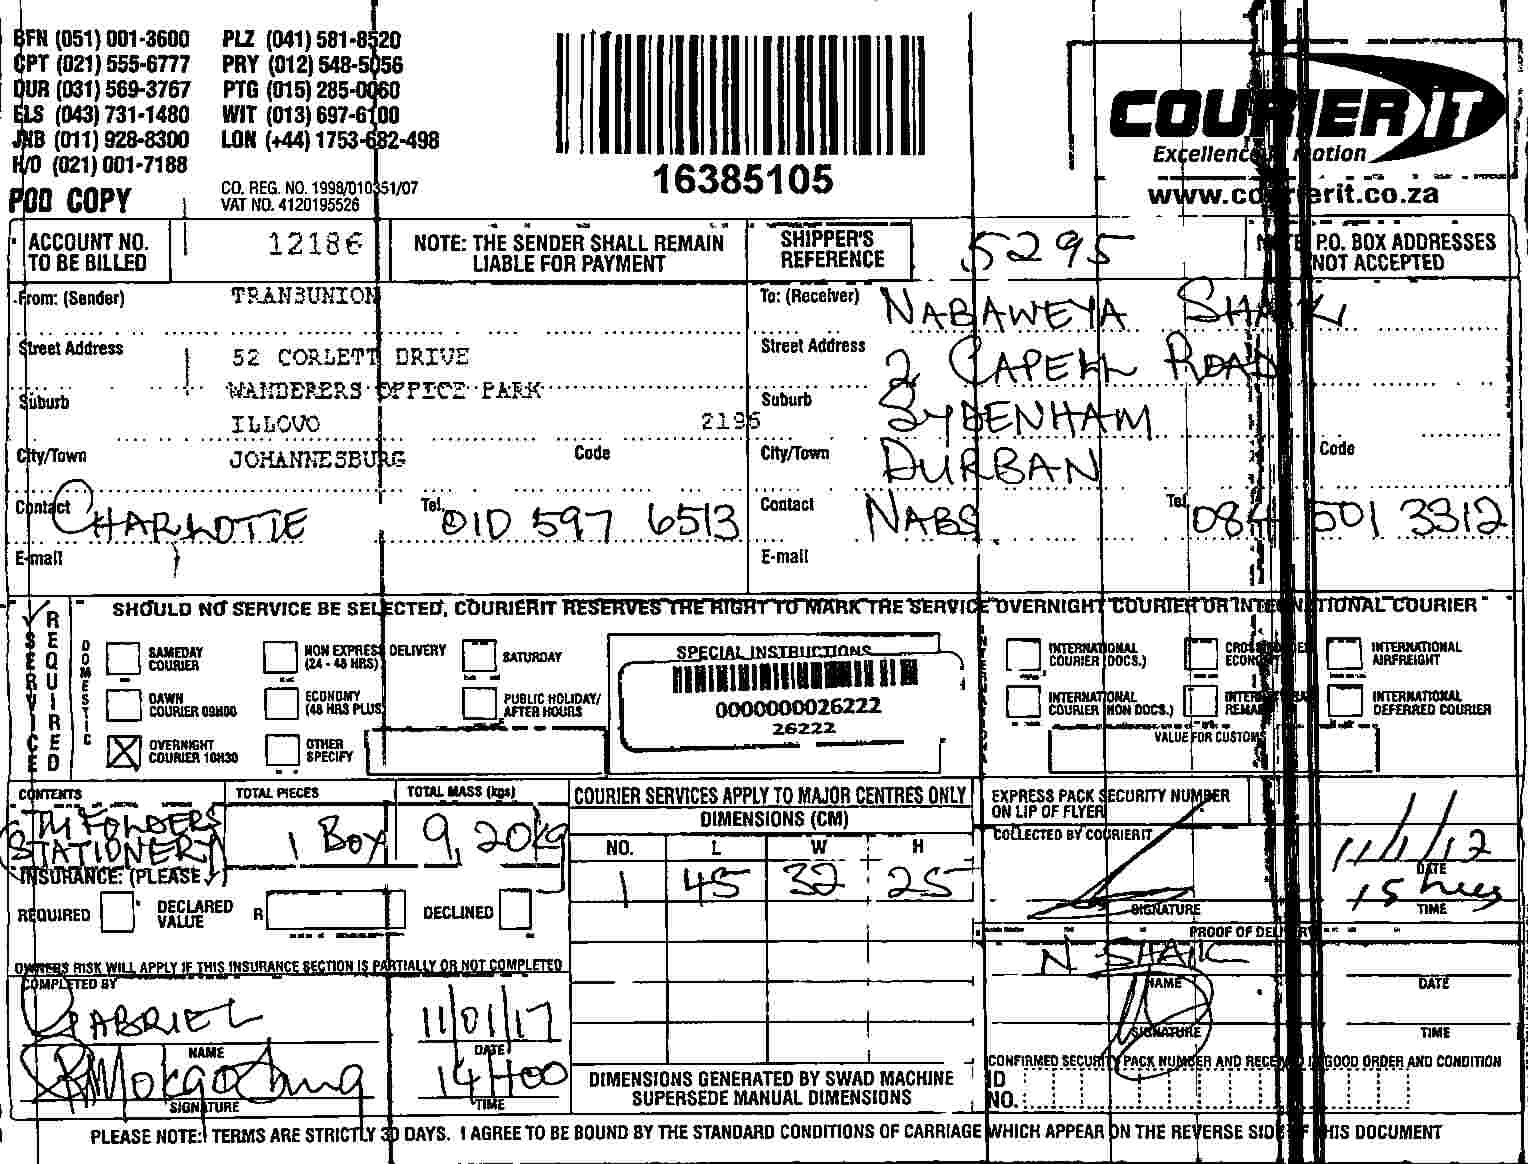 BFN (051) 001-3600 PLZ (041) 581-8520
CPT (021) 555-6777 PRY (012) 548-5056
DUR (031) 569-3767 PTG (015) 285-0060
ELS (043) 731-1480 WIT (013) 697-6100
JNB (011) 928-8300 LON (+44) 1753-682-498
H/O (021) 001-7188
POD COPY
CO. REG. NO. 1998/010351/07
VAT NO. 4120195526
16385105
COURIER IT
Excellence in motion
www.courierit.co.za
ACCOUNT NO. TO BE BILLED 12186
NOTE: THE SENDER SHALL REMAIN LIABLE FOR PAYMENT
SHIPPER'S REFERENCE 5295
NOTE: P.O. BOX ADDRESSES NOT ACCEPTED
From: (Sender) TRANSUNION
Street Address 52 CORLETT DRIVE
Suburb WANDERERS OFFICE PARK
ILLOVO 2196
City/Town JOHANNESBURG Code
Contact CHARLOTTE Tel. 010 597 6513
E-mail
To: (Receiver) NABAWEYA SHAIK
Street Address 2 CAPELL ROAD
Suburb SYDENHAM
City/Town DURBAN Code
Contact NABS Tel. 084 501 3312
E-mail
SERVICE REQUIRED
SHOULD NO SERVICE BE SELECTED, COURIERIT RESERVES THE RIGHT TO MARK THE SERVICE OVERNIGHT COURIER OR INTERNATIONAL COURIER
DOMESTIC
SAMEDAY COURIER
NON EXPRESS DELIVERY (24 - 48 HRS)
SATURDAY
DAWN COURIER 09H00
ECONOMY (48 HRS PLUS)
PUBLIC HOLIDAY/ AFTER HOURS
OVERNIGHT COURIER 10H30
OTHER SPECIFY
SPECIAL INSTRUCTIONS
0000000026222
26222
INTERNATIONAL COURIER (DOCS.)
INTERNATIONAL AIRFREIGHT
INTERNATIONAL COURIER (NON DOCS.)
INTERNATIONAL DEFERRED COURIER
VALUE FOR CUSTOMS
CONTENTS
FOLDERS
STATIONERY
TOTAL PIECES
1 BOX
TOTAL MASS (kgs)
9,20kg
INSURANCE: (PLEASE ✓)
REQUIRED DECLARED VALUE R DECLINED
OWNERS RISK WILL APPLY IF THIS INSURANCE SECTION IS PARTIALLY OR NOT COMPLETED
COURIER SERVICES APPLY TO MAJOR CENTRES ONLY
DIMENSIONS (CM)
NO. L W H
1 45 32 25
DIMENSIONS GENERATED BY SWAD MACHINE SUPERSEDE MANUAL DIMENSIONS
EXPRESS PACK SECURITY NUMBER ON LIP OF FLYER
COLLECTED BY COURIERIT
11/1/12
DATE
SIGNATURE
15
TIME
PROOF OF DELIVERY
N SHAIK
NAME DATE
SIGNATURE TIME
CONFIRMED SECURITY PACK NUMBER AND RECEIVED IN GOOD ORDER AND CONDITION
ID NO.
COMPLETED BY
GABRIEL
NAME
11/01/17
DATE
SIGNATURE
14H00
TIME
PLEASE NOTE: TERMS ARE STRICTLY 30 DAYS. I AGREE TO BE BOUND BY THE STANDARD CONDITIONS OF CARRIAGE WHICH APPEAR ON THE REVERSE SIDE OF THIS DOCUMENT